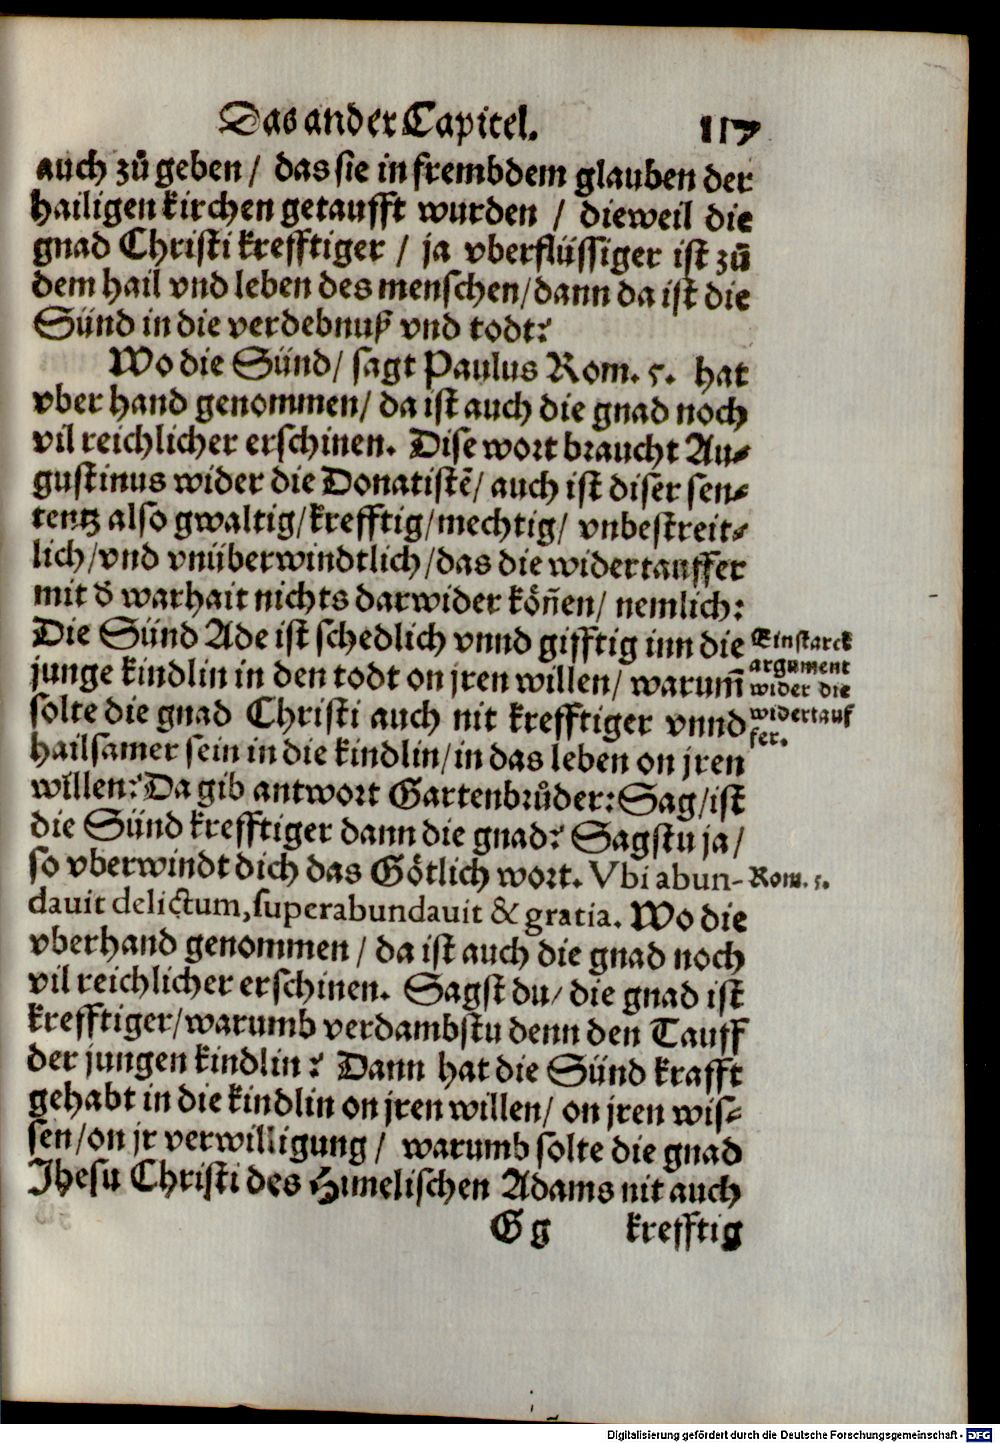 Das ander Capitel. 117
auch zů geben / das sie in frembdem glauben der
hailigen kirchen getaufft wurden / dieweil die
gnad Christi krefftiger / ja vberflüssiger ist zů
dem hail vnd leben des menschen/dann da ist die
Sünd in die verdebnuß vnd todt?
Wo die Sünd/ sagt Paulus Rom. 5. hat
vber hand genommen/ da ist auch die gnad noch
vil reichlicher erschinen. Dise wort braucht Au-
gustinus wider die Donatistē/ auch ist diser sen-
tentz also gwaltig/krefftig/mechtig/ vnbestreit-
lich/vnd vnüberwindtlich/das die widertauffer
mit d̕ warhait nichts darwider köñen/ nemlich:
Die Sünd Ade ist schedlich vnnd gifftig inn die
junge kindlin in den todt on jren willen/ warum̄
solte die gnad Christi auch nit krefftiger vnnd
hailsamer sein in die kindlin/in das leben on jren
willen? Da gib antwort Gartenbrůder: Sag/ist
die Sünd krefftiger dann die gnad? Sagstu ja/
so vberwindt dich das Götlich wort. Vbi abun-
davit delictum, superabundavit & gratia. Wo die
vberhand genommen / da ist auch die gnad noch
vil reichlicher erschinen. Sagst du/ die gnad ist
krefftiger/warumb verdambstu denn den Tauff
der jungen kindlin? Dann hat die Sünd krafft
gehabt in die kindlin on jren willen/ on jren wis-
sen/on jr verwilligung / warumb solte die gnad
Jhesu Christi des Himelischen Adams nit auch
Gg krefftig
Ein starck
argument
wider die
widertauf
fer.
Rom. 5.
Digitalisierung gefördert durch die Deutsche Forschungsgemeinschaft - DFG